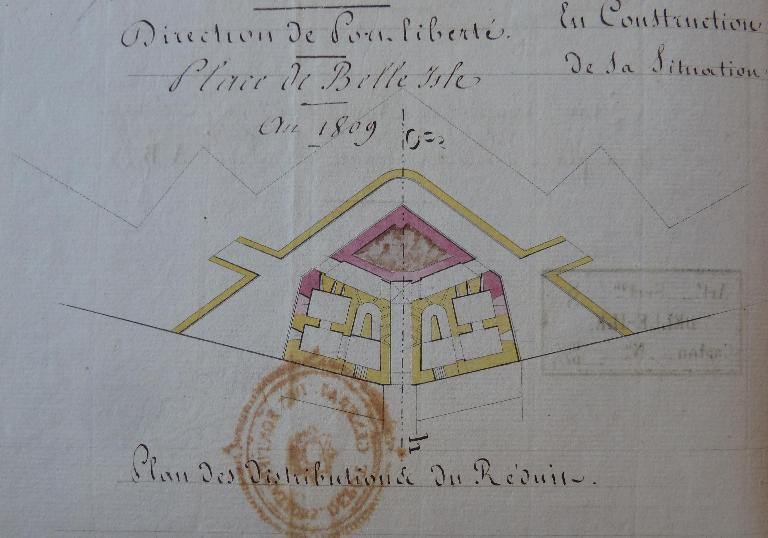 Direction de Port-liberté.
Place de Belle Isle
An 1809
En Construction
de sa Situation
g
h
Plan des Distributions du Réduit.